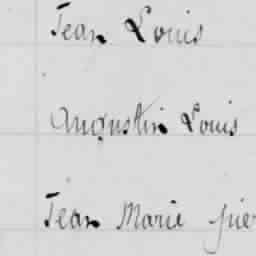 Jean Louis
Augustin Louis
Jean Marie pier